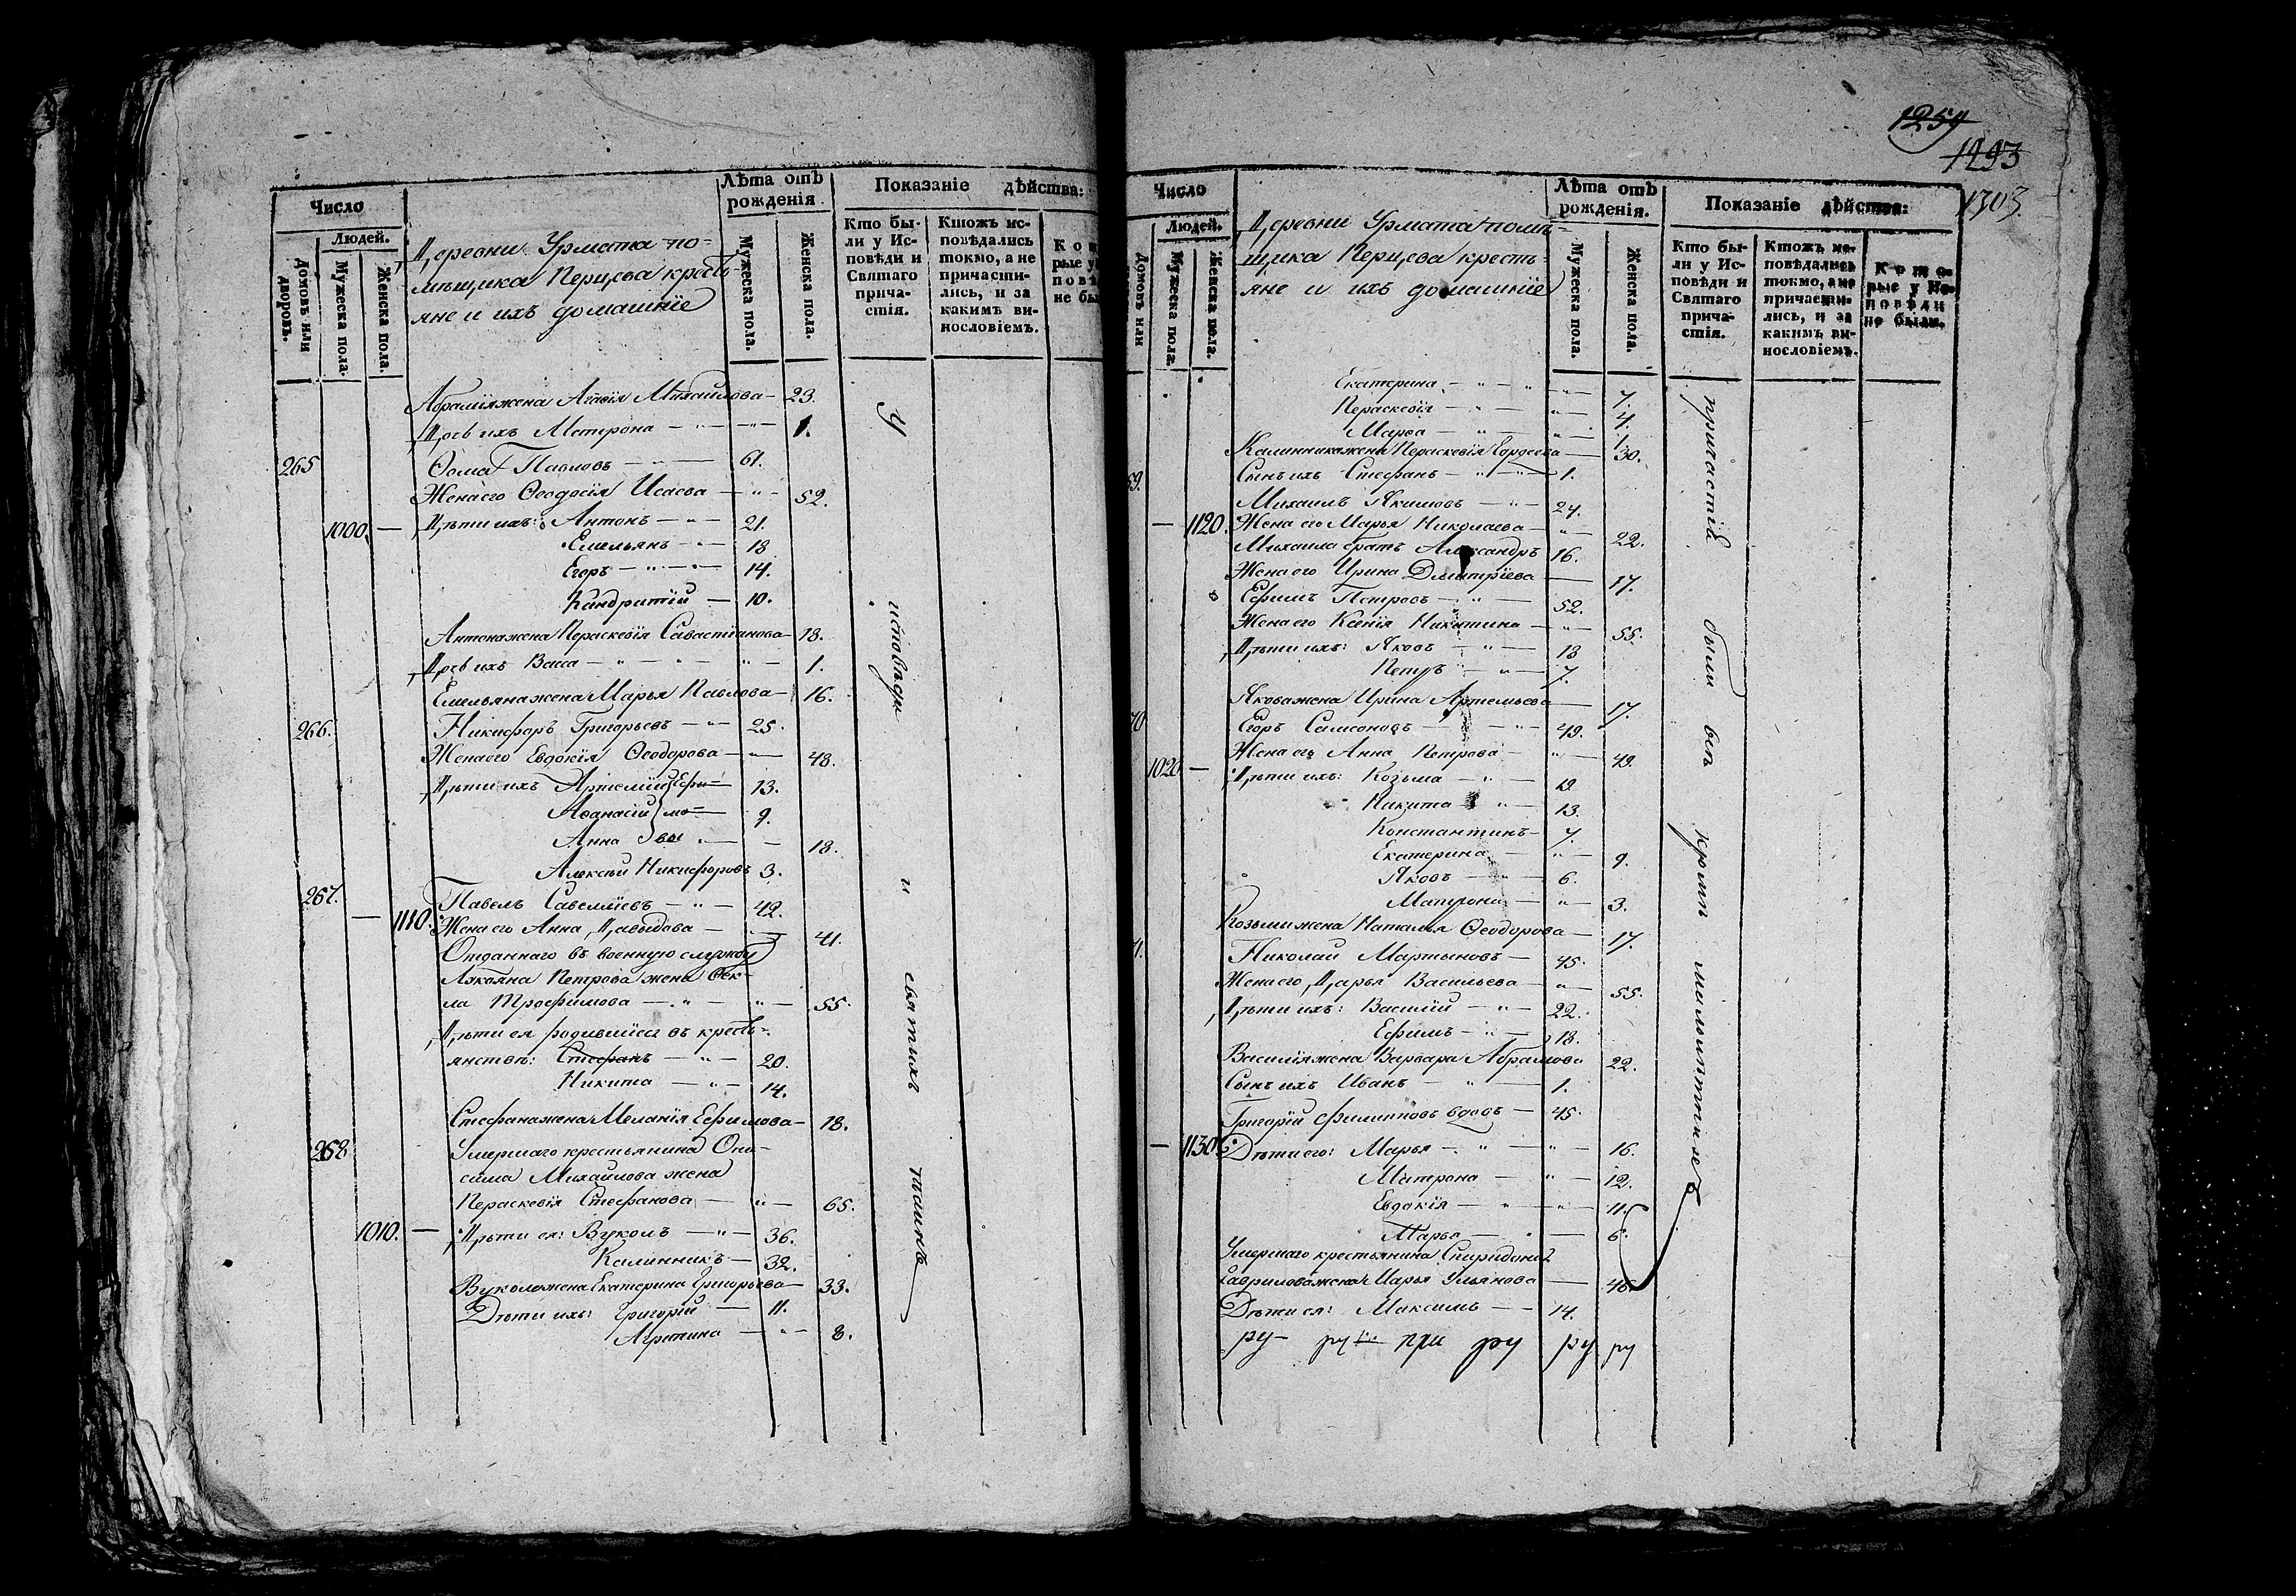 Число
Людей.
Домовъ или дворовъ.
Мужеска пола.
Женска пола.
Деревни Урмата по-
мѣщика Перцева кресть-
яне и ихъ домашніе
Лѣта отъ рожденія
Мужеска пола.
Женска пола.
Показаніе дѣйства:
Кто бы-
ли у Ис-
повѣди и
Святаго
прича-
стія.
Ктожъ ис-
повѣдались
токмо, а не
причасти-
лись, и за
какимъ ви-
нословіемъ.
Абраміяжена Агафія Михайлова — 23.
Дочь ихъ Матрона — " — " — 1.
265 Ѳома Павловъ — " — 61.
Жена его Ѳеодосія Исаева — " — 52.
1000. — Дѣти ихъ: Антонъ — " — 21.
Емельянъ — " — 18
Егоръ — " — " — 14.
Кандратій — 10.
Антонажена Параскевія Савастіанова — 18.
Дочь ихъ Васса — " — " — " — 1.
Емельянажена Марья Павлова — 16.
266. Никифоръ Григорьевъ — " — 25.
Жена его Евдокія Ѳеодорова — " — 48.
Дѣти ихъ Артемій Ефи- 13.
Аѳанасій мо- 9.
Анна вы — 18.
Алексѣй Никифоровъ 3.
267. Павелъ Савельевъ — " — 42.
— 1110. Жена его Анна Давыдова — " — 41.
Отданнаго въ военную службу
Петрова жена Ѳек-
ла Трофимова — " — " — 55.
Дѣти ея родившіеся въ кресть-
янствѣ: Стефанъ — " — 20.
Никита — " — 14.
Стефанажена Меланія Ефимова — 18.
268 Умершаго крестьянина Они-
сима Михайлова жена
Параскевія Стефанова — " — 65.
1010. — Дѣти ея: Вуколъ — " — 36.
Калинникъ — 32.
Вуколажена Екатерина Григорьева — 33.
Дѣти ихъ: Григорій — 11.
Агрипина — " — 8.
У исповѣди и святыхъ таинъ
1259
1293
1303.
Число
Людей.
Домовъ или
Мужеска пола.
Женска пола.
Деревни Урмата помѣ-
щика Перцева кресть-
яне и ихъ домашніе
Лѣта отъ рожденія.
Мужеска пола.
Женска пола.
Показаніе дѣйства:
Кто бы-
ли у Ис-
повѣди и
Святаго
прича-
стія.
Ктожъ ис-
повѣдались
токмо, а не
причасти-
лись, и за
какимъ ви-
нословіемъ.
Кото-
рые у Ис-
повѣди
не были.
Екатерина — " — " — 7.
Параскевія — " — " — 4.
Марѳа — " — " — 1.
Калинникажена Параскевія Гордеева — 30.
Сынъ ихъ Стефанъ — " — " — 1.
Михаилъ Якимовъ — " — 24.
— 1120. Жена его Марья Николаева — " — 22.
Михаила братъ Александръ 16.
Жена его Ирина Дмитріева — 17.
Ефимъ Петровъ — " — 52.
Жена его Ксенія Никитина — " — 55.
Дѣти ихъ: Яковъ — " — 18
Петръ — " — 7.
Яковажена Ирина Артемьева — 17.
70 Егоръ Самсоновъ — " — " — 49.
Жена его Анна Петрова — " — 49.
1020 — Дѣти ихъ: Козьма — " — 19
Никита — " — 13.
Константинъ — 7.
Екатерина — " — 9.
Яковъ — " — 6.
Матрона — " — 3.
Козьмижена Наталья Ѳеодорова — 17.
Николай Мартыновъ — 45.
Жена его Дарья Васильева — " — 55.
Дѣти ихъ: Василій — " — 22.
Ефимъ — " — 18.
Василіяжена Варвара Абрамова 22.
Сынъ ихъ Иванъ — " — 1.
Григорій Филиповъ вдовъ — 45.
— 1130. Дѣти его: Марья — " — " — 16.
Матрона — " — 12.
Евдокія — " — " — 11.
Марья — " — 6.
Умершаго крестьянина Спиридона
Гавриловажена Марья Ульянова — 46.
Дѣти ея: Максимъ — 14.
ру ру при ру ру ру
причастія были всѣ кромѣ